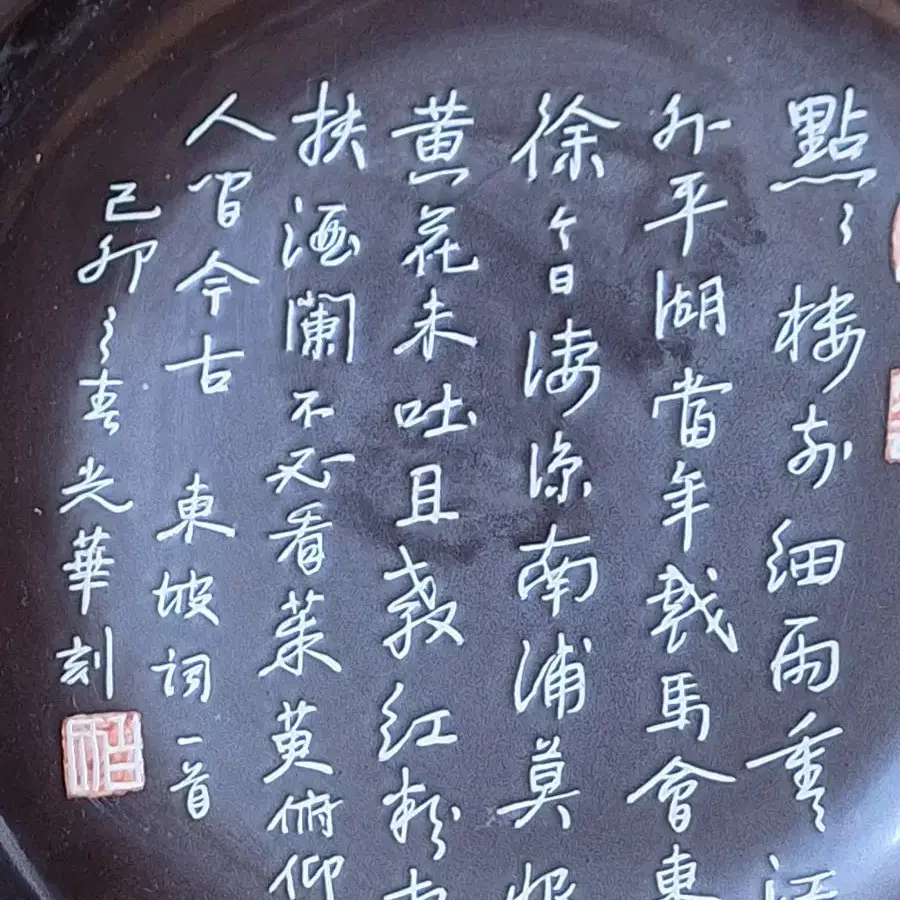 點々樓前細雨重々江
外平湖當年戲馬會東
徐今日淒涼南浦莫恨
黄花未吐且教紅粉
扶酒闌不必看茱萸俯仰
人間今古 東坡詞一首
己卯之春光華刻